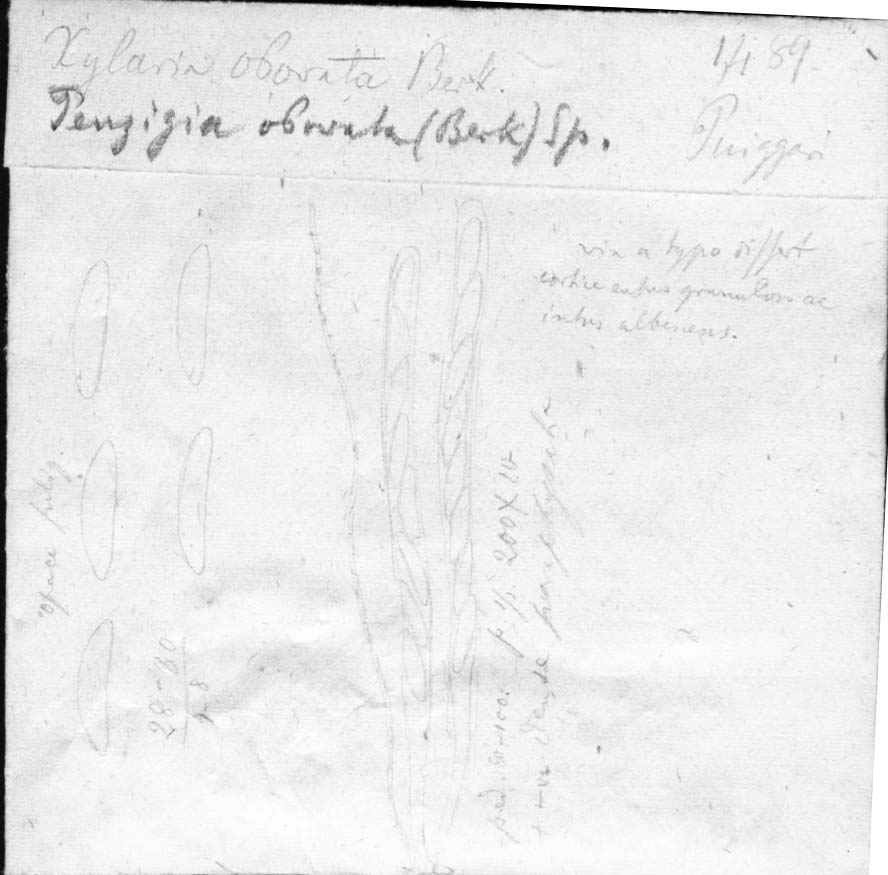 Xylaria obovata Berk.
Penzigia obovata (Berk) Sp.
Puiggari
vix a typo differt
cortice extus granuloso ac
intus albescens.
opace fulig.
28-30
7-8
p. sp. 200 X 10
dense paraphysati